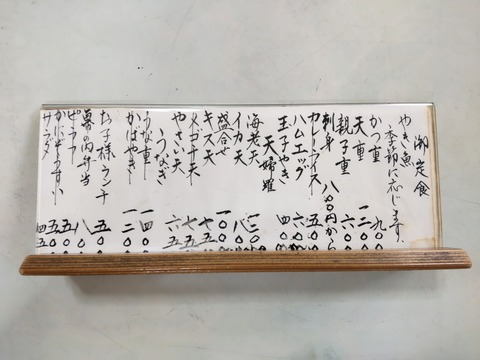 潮定食
やき魚
(季節に応じます)
かつ重 九〇〇
天重 一二〇〇
親子重 六〇〇
刺身 八〇〇円から
カレーライス 五〇
ハムエッグ 六〇
玉子やき 四〇
天婦羅
海老天 一二〇〇
イカ天 八〇
盛合せ 一〇〇〇
キス天 七五
メゴチ天 七五
やさい天 六五
うなぎ
うな重 一四〇〇
かばやき 一二〇〇
お子様ランチ
幕の内弁当 八〇
ピラフ 五〇
五〇
サラダ 四五